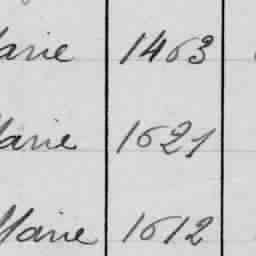 Marie 1463
Marie 1621
Marie 1612